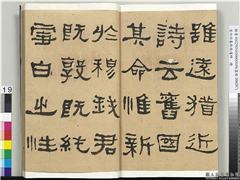 雖遠猶近
詩云舊國
其命惟新
於穆我君
既敦既純
雪白之性
19